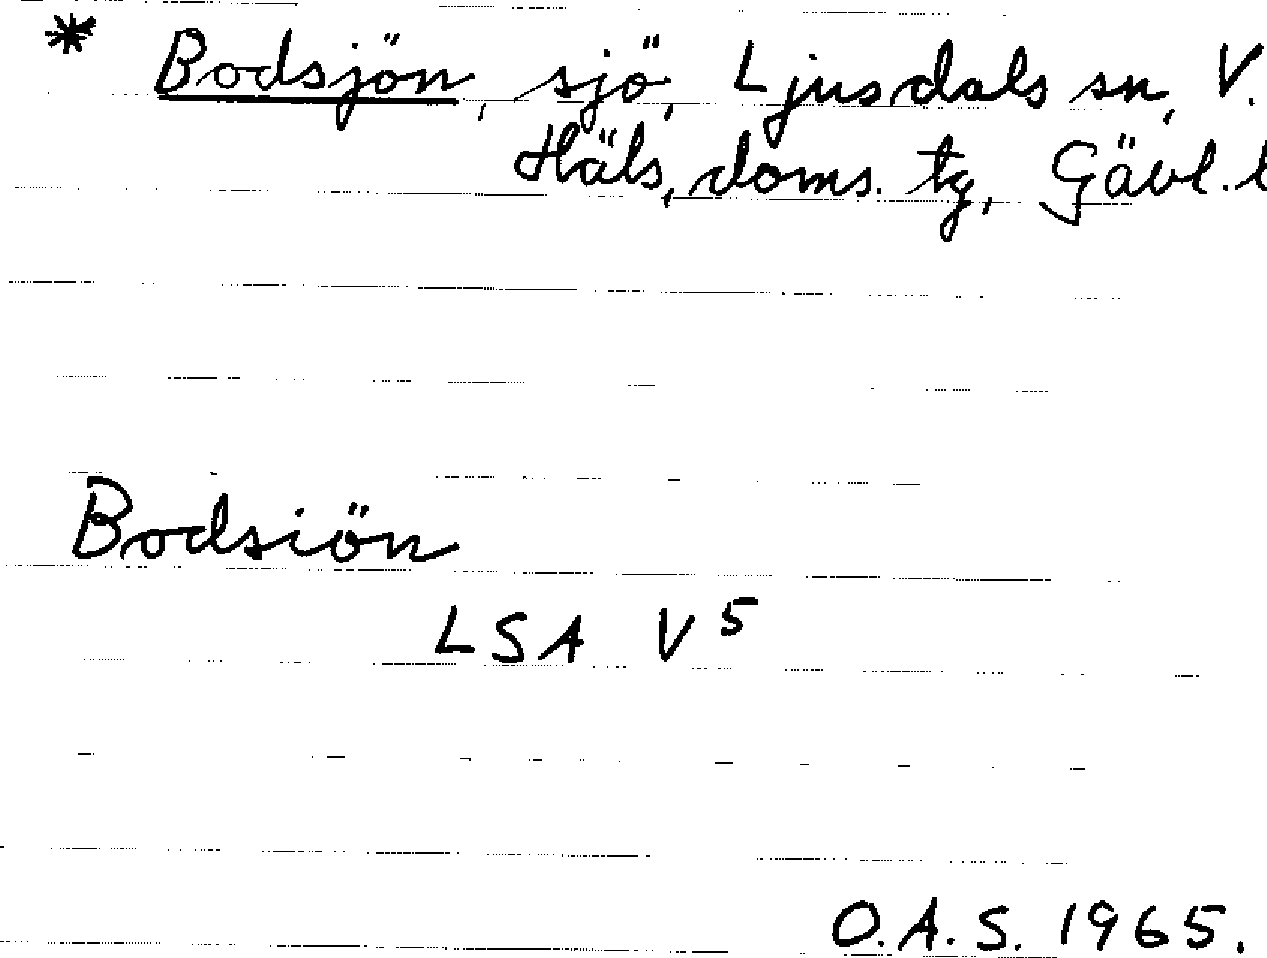 * Bodsjön, sjö, Ljusdals sn, V.
Häls. doms. tg, Gävl. l
Bodsiön
LSA V 5
O.A.S. 1965.